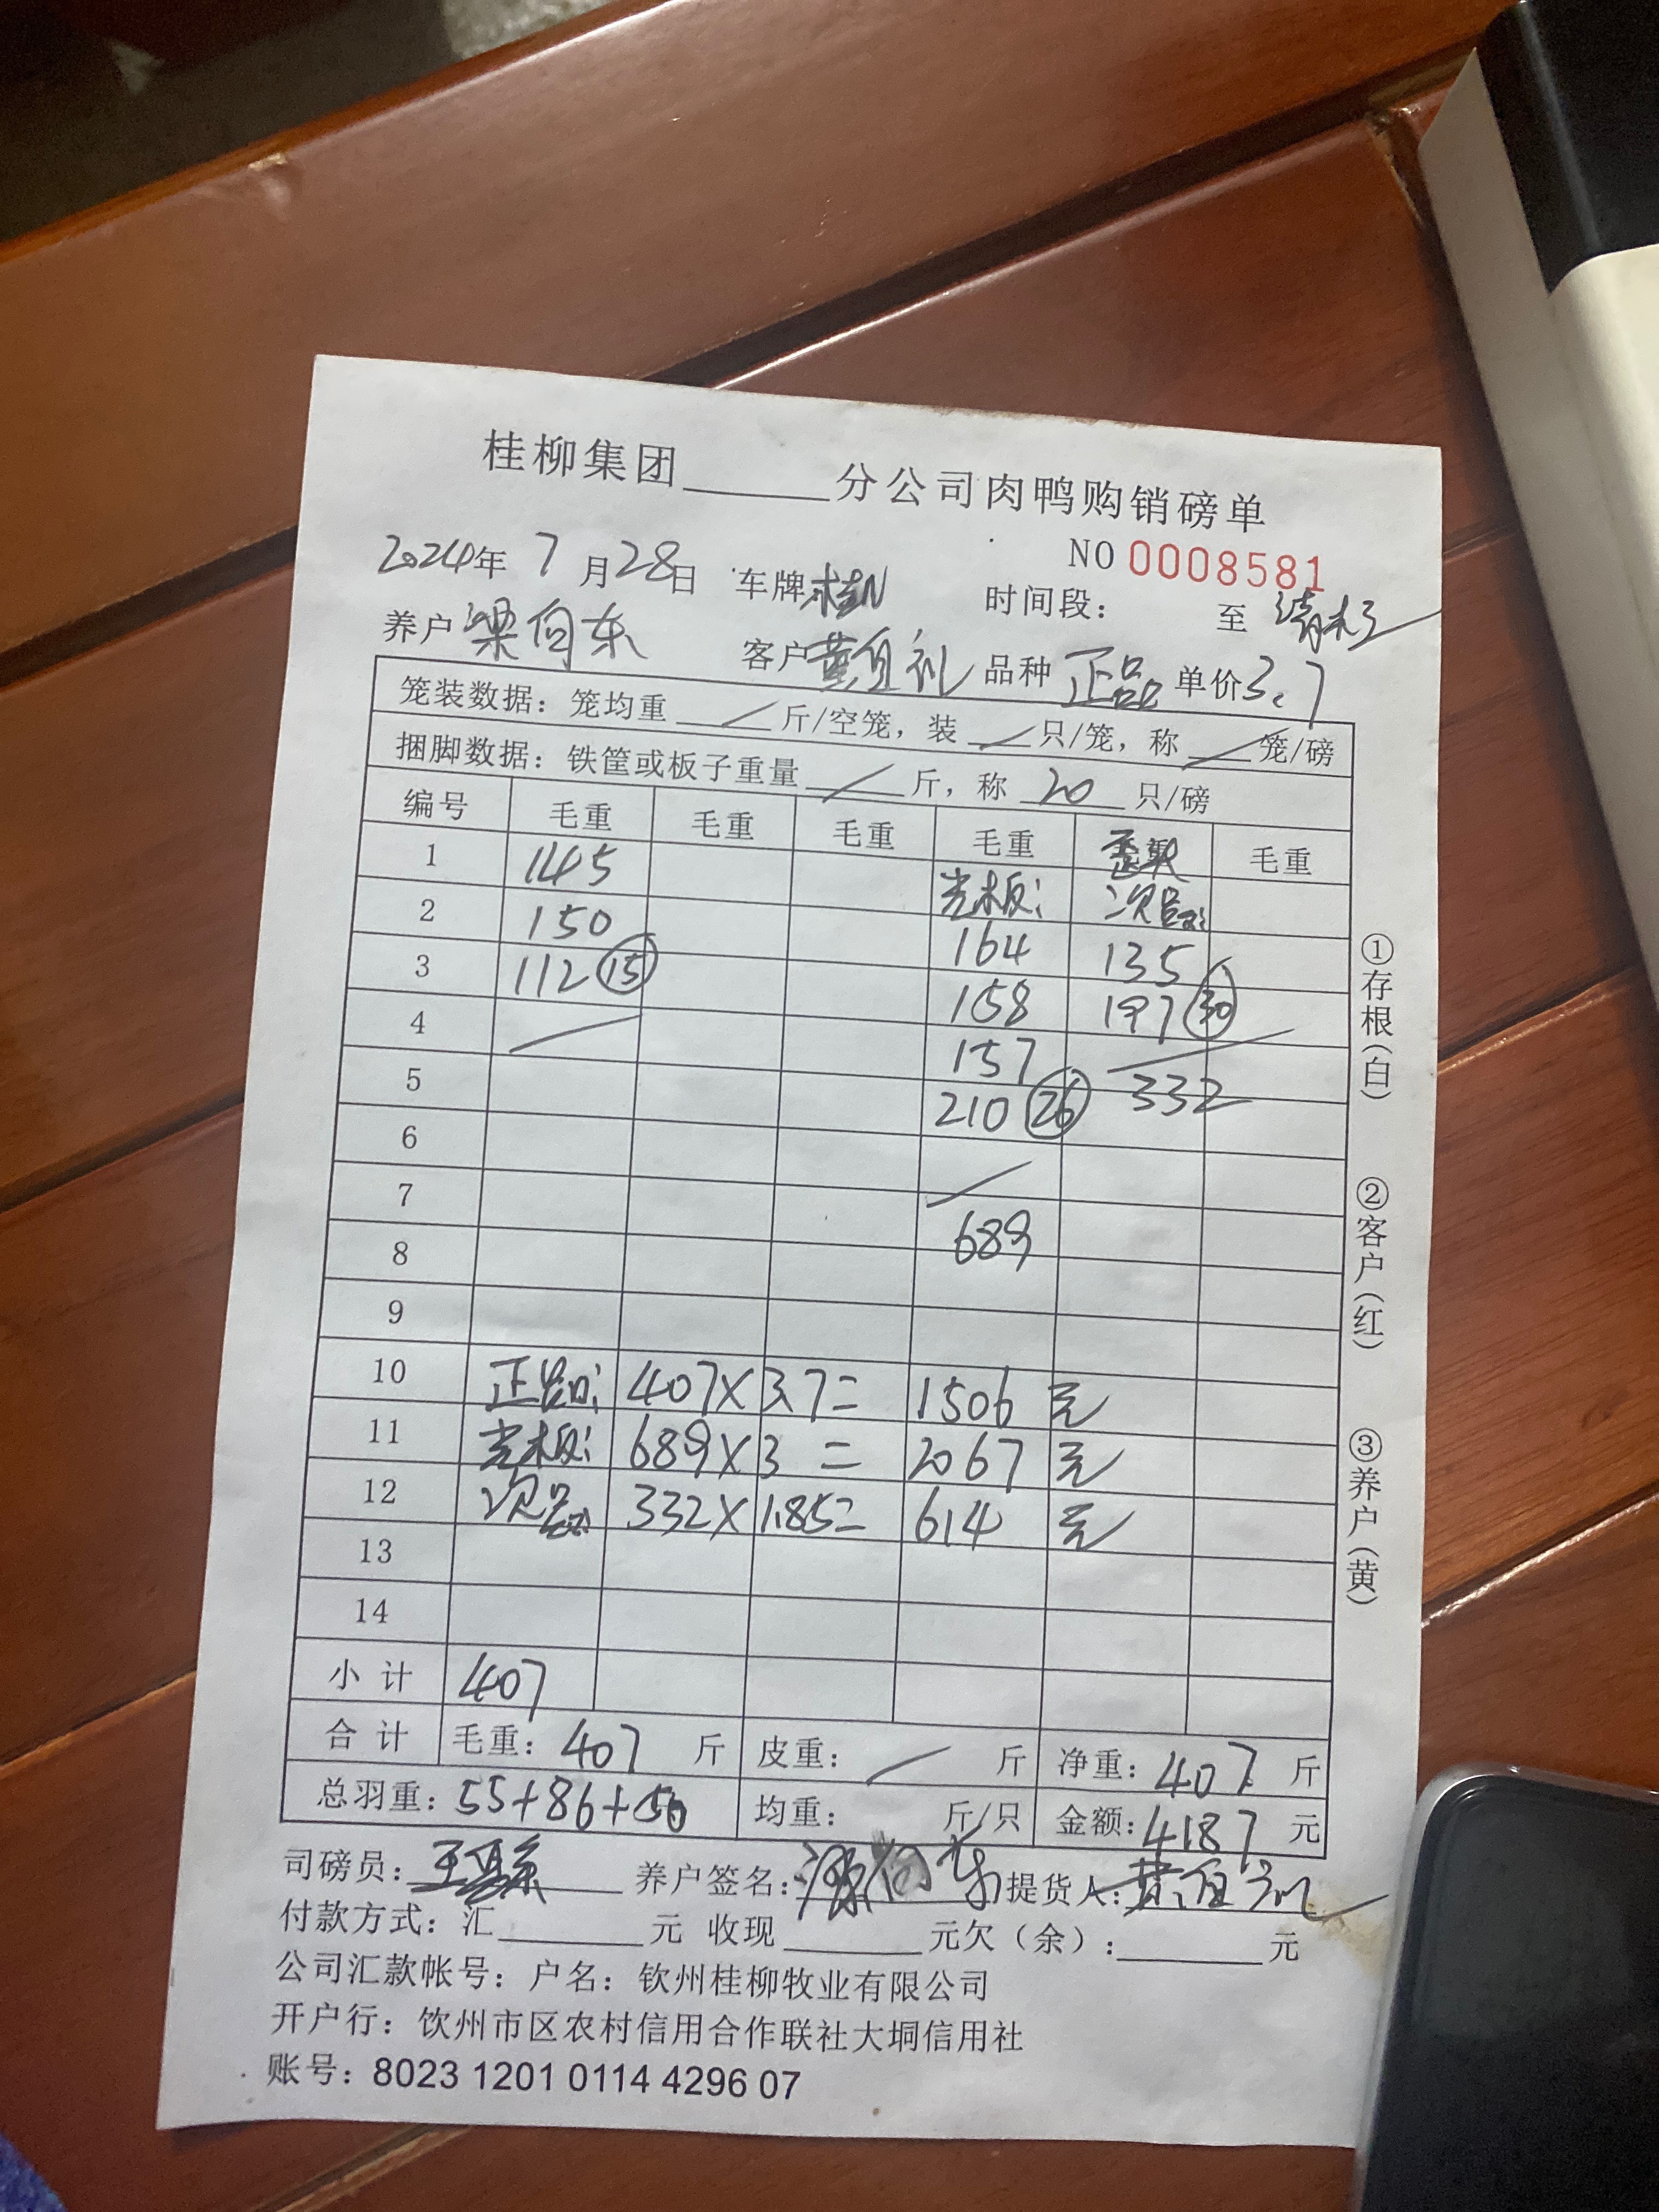 桂柳集团______分公司肉鸭购销磅单
NO 0008581
2024年 7月28日 车牌 时间段： 至
养户 梁向东 客户 黄 礼 品种 正品 单价 3.7
笼装数据：笼均重 / 斤/空笼，装 / 只/笼，称 / 笼/磅
捆脚数据：铁筐或板子重量 / 斤，称 20 只/磅
编号 毛重 毛重 毛重 毛重 毛重
1 145 光板： 次品
2 150 164 135
3 112 ⑮ 158 197 ㉚
4 / 157 /
5 210 ㉖ 332
6 /
7 689
8
9
10 正品： 407×3.7= 1506 元
11 光板： 689×3 = 2067 元
12 次品 332×1.85= 614 元
13
14
小计 407
合计 毛重：407 斤 皮重： / 斤 净重：407 斤
总羽重：55+86+50 均重： 斤/只 金额：4187 元
司磅员： 养户签名：梁向东 提货人：
付款方式：汇______元 收现______元欠（余）：______元
公司汇款帐号：户名：钦州桂柳牧业有限公司
开户行：饮州市区农村信用合作联社大垌信用社
账号：8023 1201 0114 4296 07
①存根（白）
②客户（红）
③养户（黄）